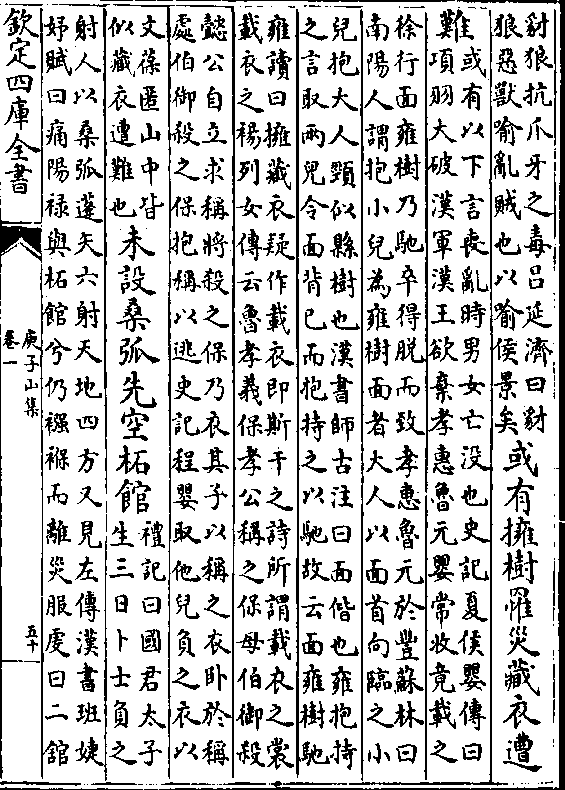 豺狼抗爪牙之毒吕延濟曰豺
狼惡獸喻亂賊也以喻侯景矣
或有擁樹罹災藏衣遭
難
或有以下言喪亂時男女亡没也史記夏侯嬰傳曰
項羽大破漢軍漢王欲棄孝惠魯元嬰常收竟載之
徐行面雍樹乃馳卒得脱而致孝惠魯元於豐蘇林曰
南陽人謂抱小兒為雍樹面者大人以面首向臨之小
兒抱大人頸似縣樹也漢書師古注曰面偕也雍抱持
之言取兩兒令面背已而抱持之以馳故云面雍樹馳
雍讀曰擁藏衣疑作載衣即斯干之詩所謂載衣之裳
載衣之裼列女傳云魯孝義保孝公稱之保母伯御殺
懿公自立求稱將殺之保乃衣其子以稱之衣卧於稱
處伯御殺之保抱稱以逃史記程嬰取他兒負之衣以
文葆匿山中皆
似藏衣遭難也
未設桑弧先空柘館
禮記曰國君太子
生三日卜士負之
射人以桑弧蓬矢六射天地四方又見左傳漢書班婕
妤賦曰痛陽禄與柘館兮仍襁褓而離災服虔曰二舘
欽定四庫全書
庾子山集
卷一
五十